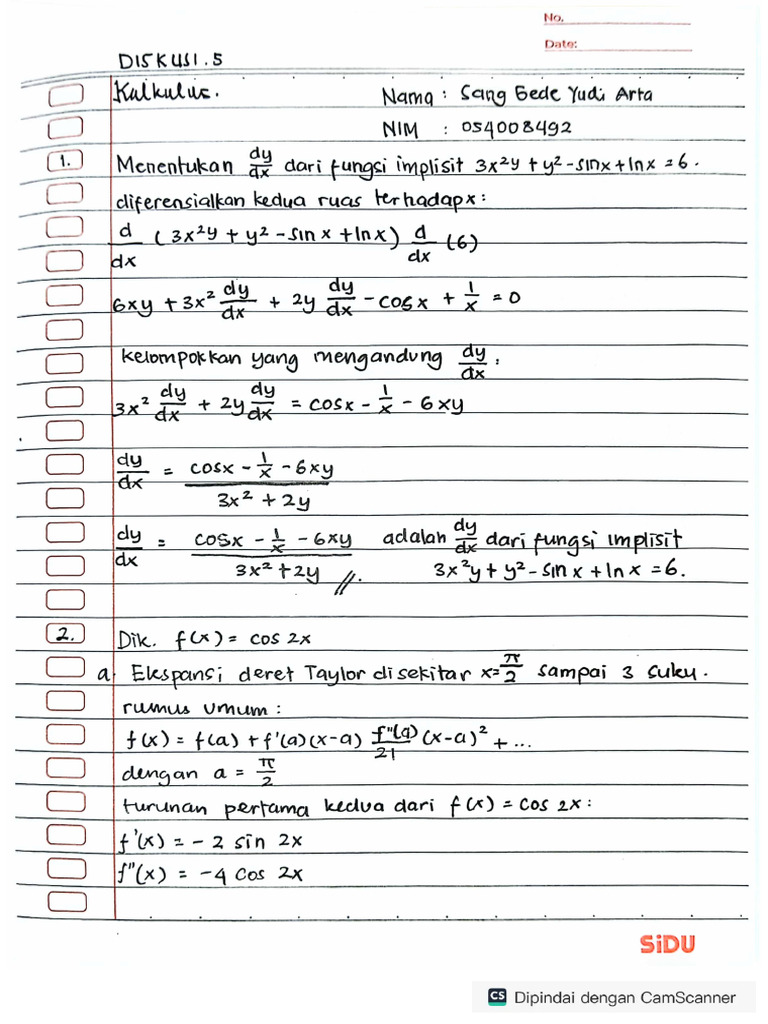 No.
Date:
DISKUSI.5
Kalkulus.
Nama : Sang Gede Yudi Arta
NIM : 054008492
1. Menentukan dy/dx dari fungsi implisit 3x²y + y² - sinx + lnx = 6.
diferensialkan kedua ruas terhadap x :
d/dx (3x²y + y² - sin x + ln x) d/dx (6)
6xy + 3x² dy/dx + 2y dy/dx - cos x + 1/x = 0
kelompokkan yang mengandung dy/dx :
3x² dy/dx + 2y dy/dx = cosx - 1/x - 6xy
dy/dx = (cosx - 1/x - 6xy)/(3x² + 2y)
dy/dx = (cosx - 1/x - 6xy)/(3x² + 2y) //. adalah dy/dx dari fungsi implisit
3x²y + y² - sin x + ln x = 6.
2. Dik. f(x) = cos 2x
a. Ekspansi deret Taylor disekitar x = π/2 sampai 3 suku.
rumus umum :
f(x) = f(a) + f'(a)(x-a) f"(a)/2! (x-a)² + ...
dengan a = π/2
turunan pertama kedua dari f(x) = cos 2x :
f'(x) = - 2 sin 2x
f"(x) = -4 cos 2x
SiDU
CS Dipindai dengan CamScanner